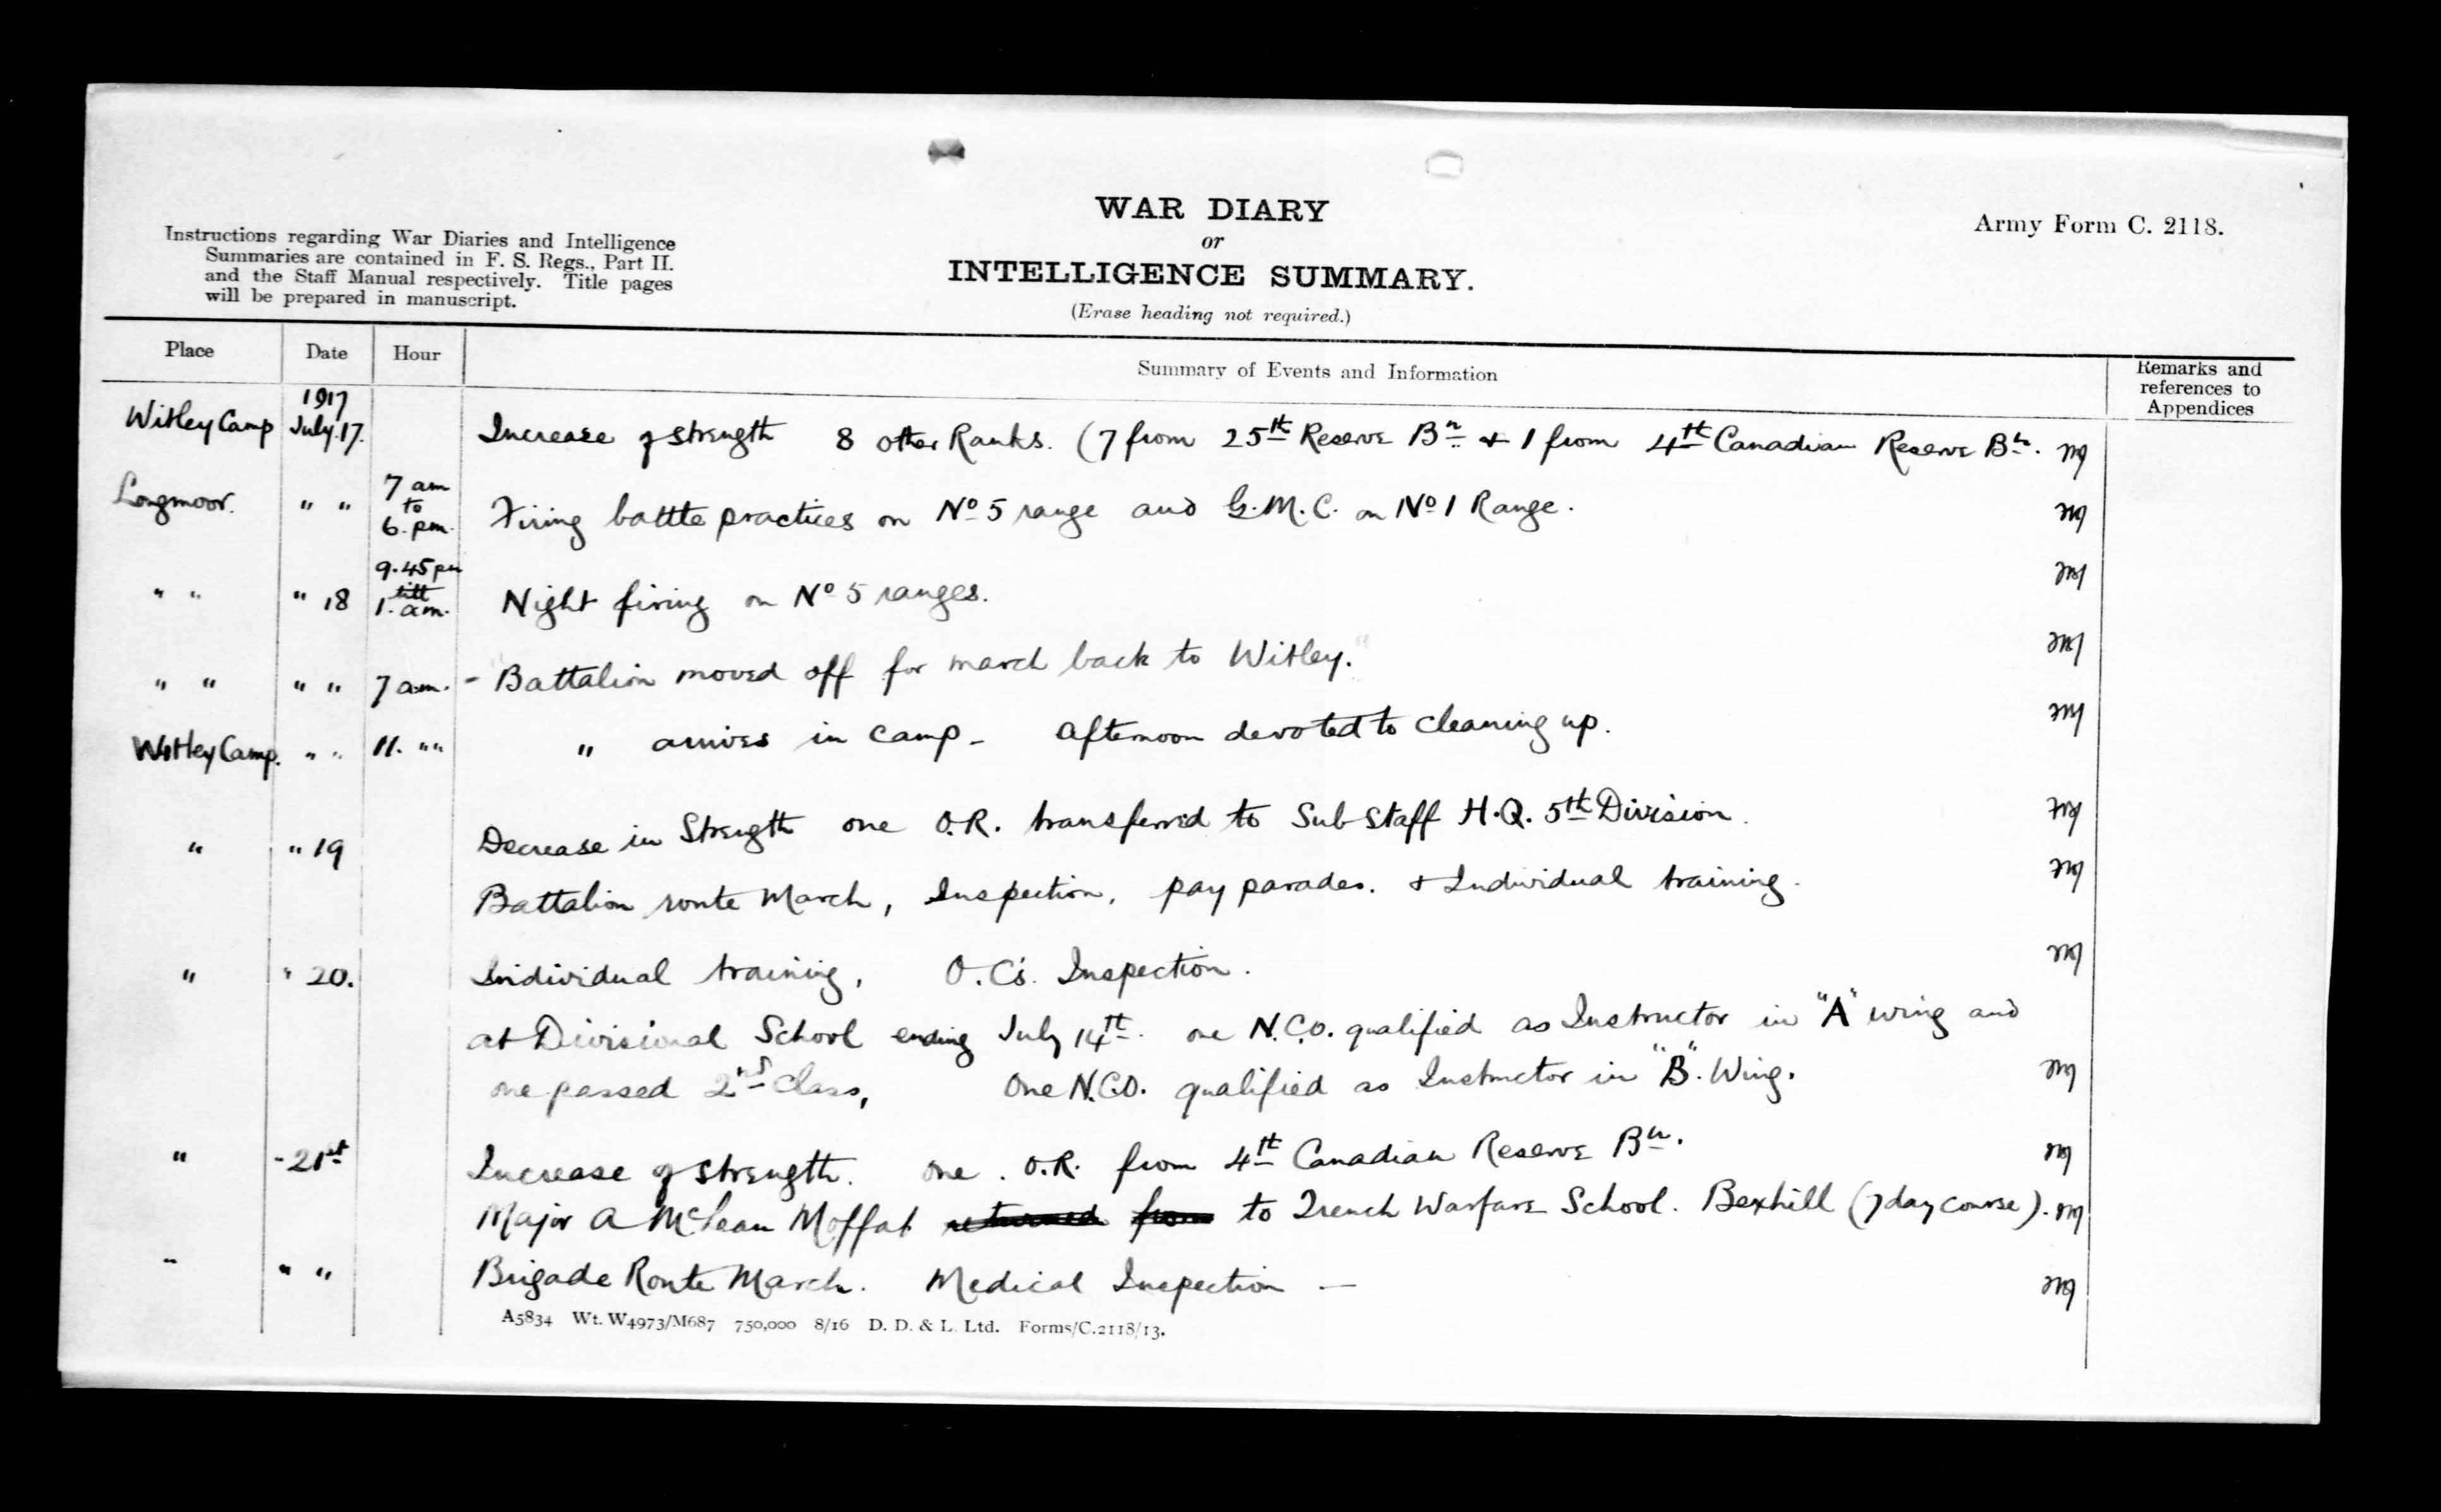 WAR DIARY
or
INTELLIGENCE SUMMARY.
(Erase heading not required.)
Army Form C. 2118.
Instructions regarding War Diaries and Intelligence
Summaries are contained in F. S. Regs., Part II.
and the Staff Manual respectively. Title pages
will be prepared in manuscript.
Place Date Hour Summary of Events and Information Remarks and references to Appendices
1917
Witley Camp July 17. Increase of strength 8 other Ranks. (7 from 25th Reserve Bn & 1 from 4th Canadian Reserve Bn.
Longmoor. " " 7 am to 6.pm. Firing battle practices on No 5 range and G.M.C. on No 1 Range.
" " " 18 9.45 pm till 1.am. Night firing on No 5 ranges.
" " " " 7 am. - Battalion moved off for march back to Witley."
Witley Camp. " " 11. "" " arrives in camp - Afternoon devoted to cleaning up.
" " 19 Decrease in Strength one O.R. transferred to Sub Staff H.Q. 5th Division.
Battalion route March, Inspection, pay parades. & Individual training.
" " 20. Individual training, O.C's. Inspection.
at Divisional School ending July 14th. one N.C.O. qualified as Instructor in "A" wing and
one passed 2nd Class, One N.C.O. qualified as Instructor in "B". Wing.
" - 21st Increase of strength. one. O.R. from 4th Canadian Reserve Bn.
Major A McLean Moffat returned from to Trench Warfare School. Bexhill (7 day course).
" " " Brigade Route March. Medical Inspection —
A5834 Wt. W4973/M687 750,000 8/16 D. D. & L. Ltd. Forms/C.2118/13.